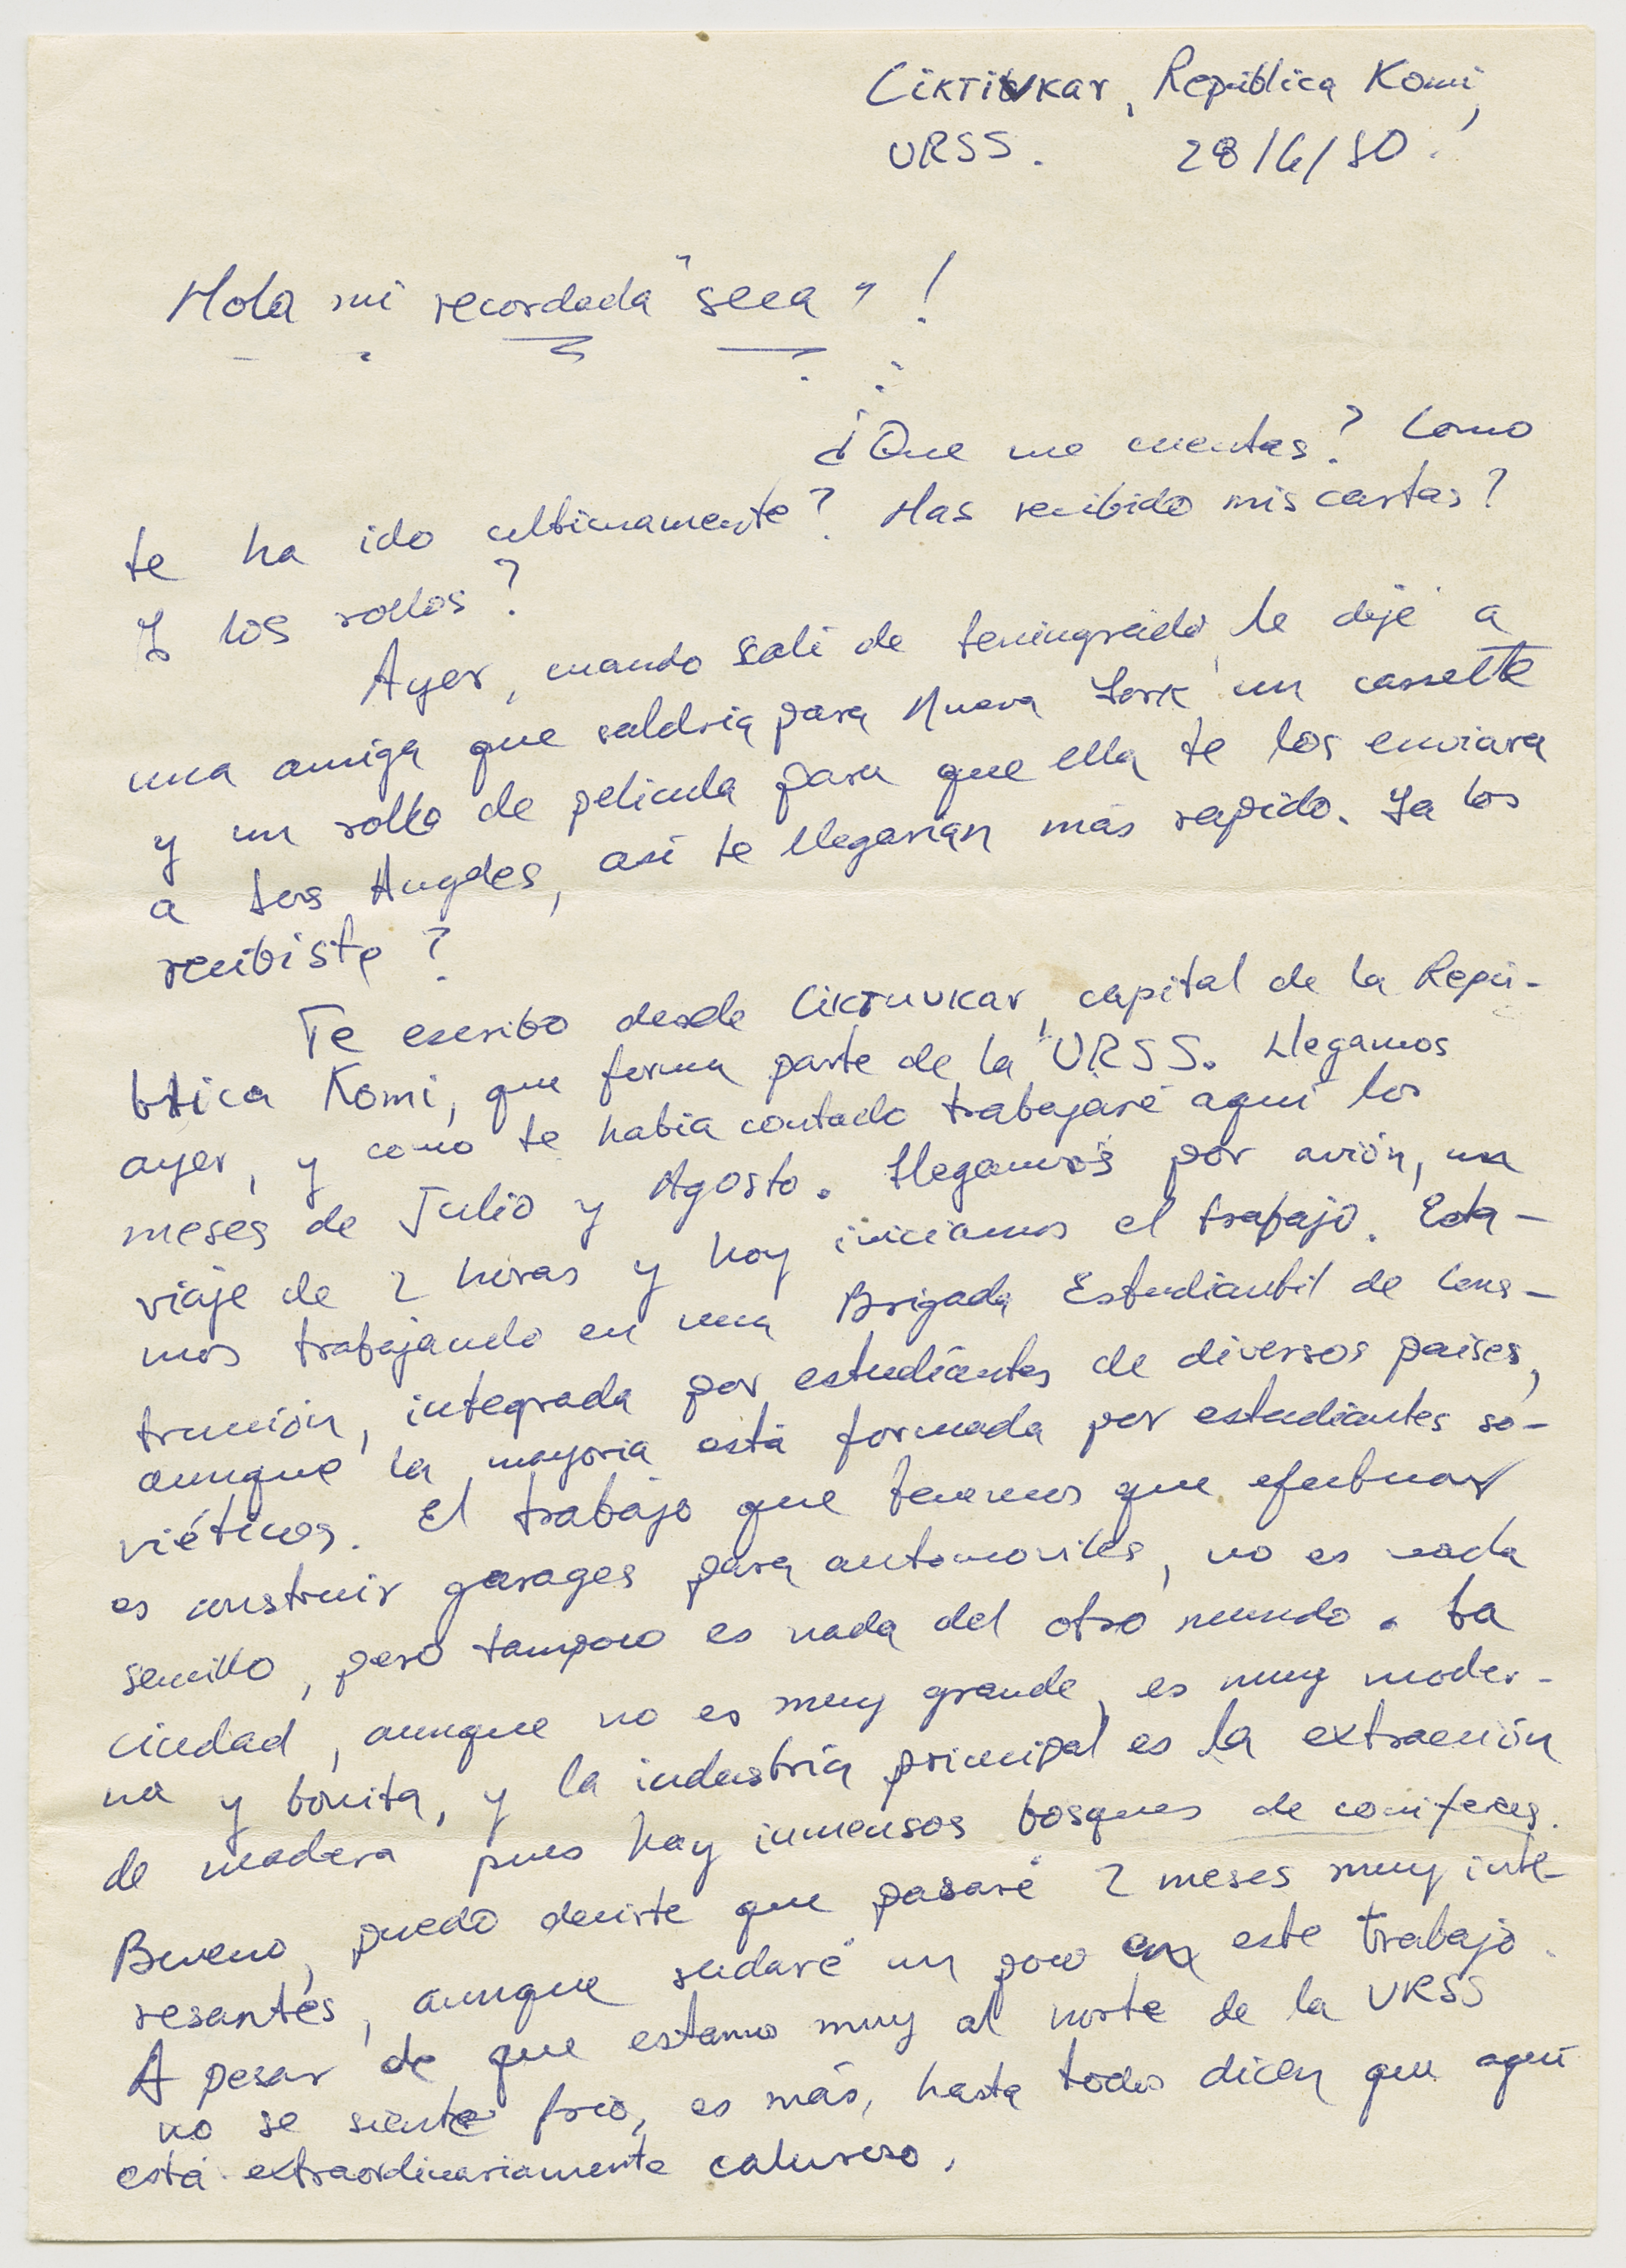 Ciktivkar, República Komi,
URSS. 28/6/80.
Hola mi recordada "seca"!
¿Que me cuentas? Como
te ha ido ultimamente? Has recibido mis cartas?
Y los rollos?
Ayer, cuando salí de Leningrado, le dejé a
una amiga que saldría para Nueva York un cassette
y un rollo de película para que ella te los enviara
a Los Angeles, así te llegarían más rapido. Ya los
recibiste?
Te escribo desde Ciktivkar, capital de la Repú-
blica Komi, que forma parte de la URSS. Llegamos
ayer, y como te había contado trabajaré aquí los
meses de Julio y Agosto. Llegamos por avión, un
viaje de 2 horas y hoy iniciamos el trabajo. Esta-
mos trabajando en una Brigada Estudiantil de Cons-
trucción, integrada por estudiantes de diversos paises,
aunque la mayoría está formada por estudiantes so-
viéticos. El trabajo que tenemos que efectuar
es construir garages para automoviles, no es nada
sencillo, pero tampoco es nada del otro mundo. La
ciudad, aunque no es muy grande, es muy moder-
na y bonita, y la industria principal es la extracción
de madera pues hay inmensos bosques de coniferas.
Bueno, puedo decirte que pasaré 2 meses muy inte-
resantes, aunque sudaré un poco en este trabajo.
A pesar de que estamos muy al norte de la URSS
no se siente frío, es más, hasta todos dicen que aquí
está extraordinariamente caluroso.